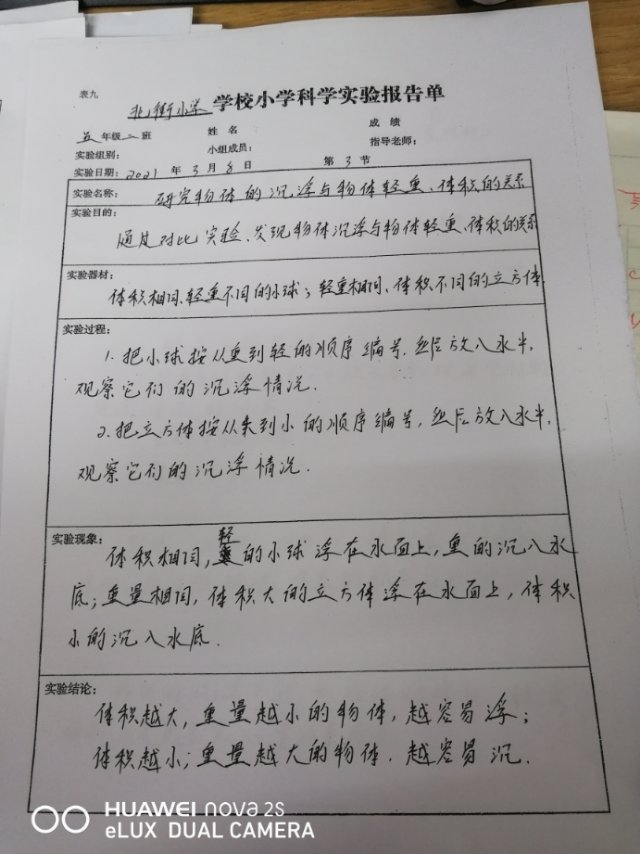 表九
北街小学 学校小学科学实验报告单
五年级二班 姓名 成绩
实验组别: 小组成员: 指导老师:
实验日期: 2021年3月8日 第3节
实验名称: 研究物体的沉浮与物体轻重、体积的关系
实验目的:
通过对比实验、发现物体沉浮与物体轻重、体积的关系
实验器材:
体积相同、轻重不同的小球；轻重相同、体积不同的立方体
实验过程:
1.把小球按从重到轻的顺序编号,然后放入水中,
观察它们的沉浮情况.
2.把立方体按从大到小的顺序编号,然后放入水中,
观察它们的沉浮情况.
实验现象:
体积相同,轻的小球浮在水面上,重的沉入水
底;重量相同,体积大的立方体浮在水面上,体积
小的沉入水底.
实验结论:
体积越大,重量越小的物体,越容易浮;
体积越小;重量越大的物体.越容易沉.
HUAWEI nova 2S
eLUX DUAL CAMERA